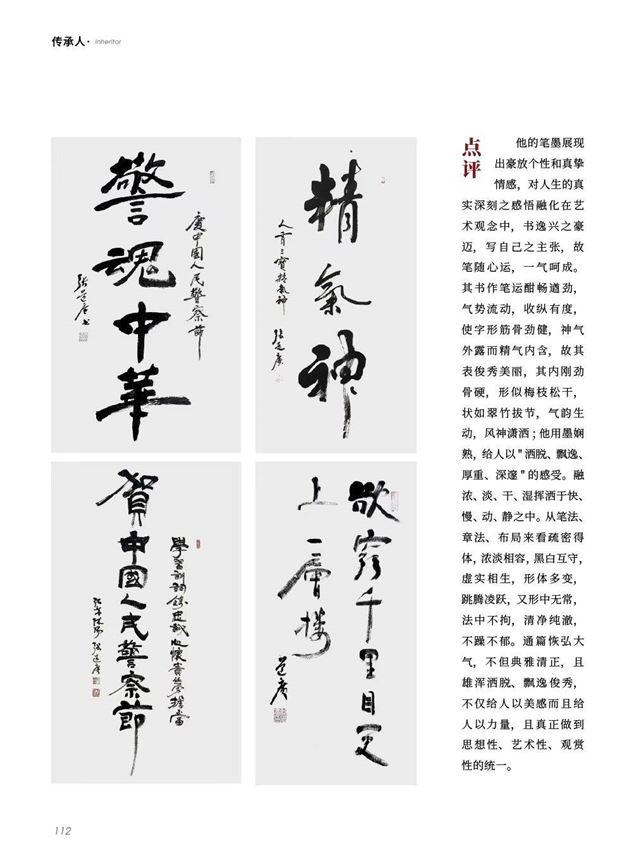 传承人· Inheritor
警魂中華
慶中國人民警察節
精氣神
人有三寶精氣神
賀中國人民警察節
欲窮千里目更
上一層樓
点评
他的笔墨展现
出豪放个性和真挚
情感，对人生的真
实深刻之感悟融化在艺
术观念中，书逸兴之豪
迈，写自己之主张，故
笔随心运，一气呵成。
其书作笔运酣畅遒劲，
气势流动，收纵有度，
使字形筋骨劲健，神气
外露而精气内含，故其
表俊秀美丽，其内刚劲
骨硬，形似梅枝松干，
状如翠竹拔节，气韵生
动，风神潇洒；他用墨娴
熟，给人以"洒脱、飘逸、
厚重、深邃"的感受。融
浓、淡、干、湿挥洒于快、
慢、动、静之中。从笔法、
章法、布局来看疏密得
体，浓淡相容，黑白互守，
虚实相生，形体多变，
跳腾凌跃，又形中无常，
法中不拘，清净纯澈，
不躁不郁。通篇恢弘大
气，不但典雅清正，且
雄浑洒脱、飘逸俊秀，
不仅给人以美感而且给
人以力量，且真正做到
思想性、艺术性、观赏
性的统一。
112